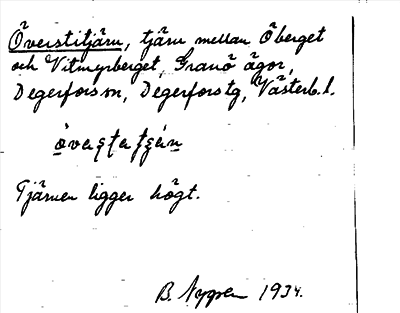 Överstitjärn, tjärn mellan Öberget
och Vitmyrberget, Granö ägor,
Degerfors sn, Degerfors tg, Västerb. l.
Tjärnen ligger högt.
B. Nygren 1934.